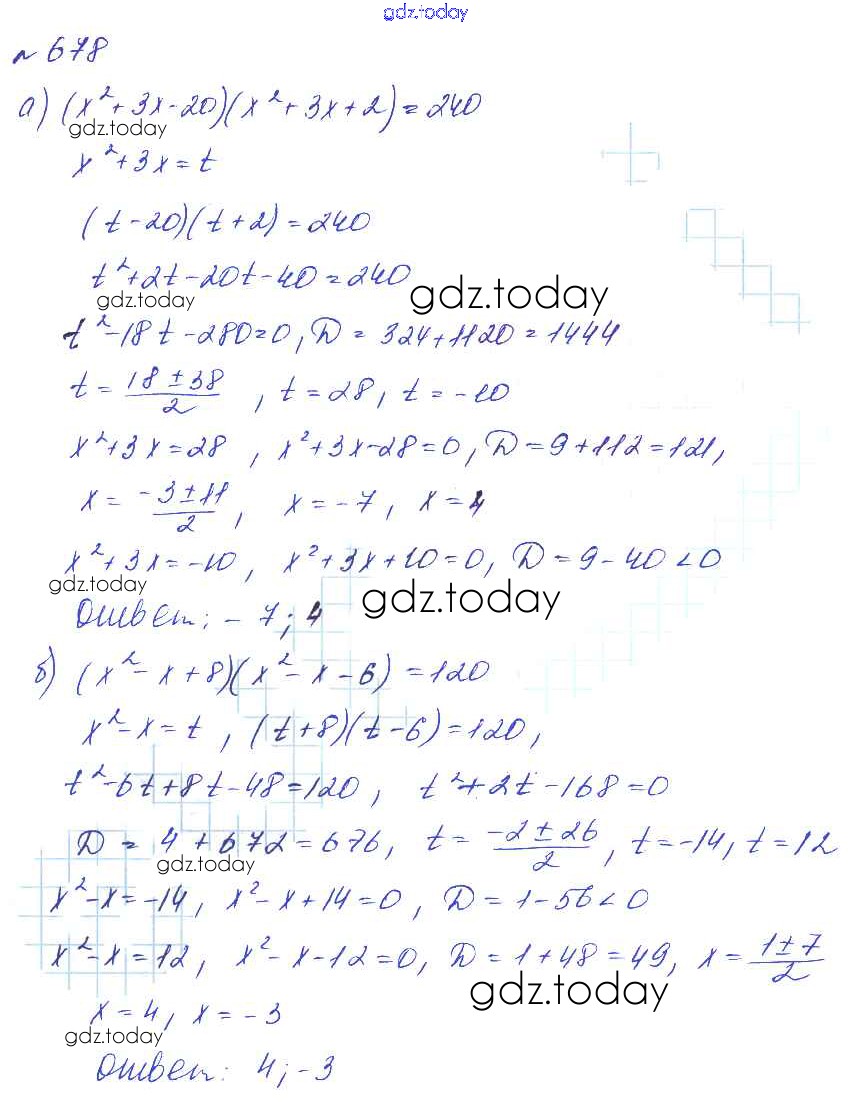 gdz.today
№ 678
а) (x²+3x-20)(x²+3x+2)=240
gdz.today
x²+3x=t
(t-20)(t+2)=240
t²+2t-20t-40=240
gdz.today
gdz.today
t²-18t-280=0, D = 324+1120=1444
t = (18±38)/2, t=28, t=-10
x²+3x=28, x²+3x-28=0, D=9+112=121,
x = (-3±11)/2, x=-7, x=4
x²+3x=-10, x²+3x+10=0, D=9-40<0
gdz.today
gdz.today
Ответ: -7; 4
б) (x²-x+8)(x²-x-6)=120
x²-x=t, (t+8)(t-6)=120,
t²-6t+8t-48=120, t²+2t-168=0
D = 4+672=676, t = (-2±26)/2, t=-14, t=12
gdz.today
x²-x=-14, x²-x+14=0, D=1-56<0
x²-x=12, x²-x-12=0, D=1+48=49, x = (1±7)/2
gdz.today
x=4, x=-3
gdz.today
Ответ: 4; -3